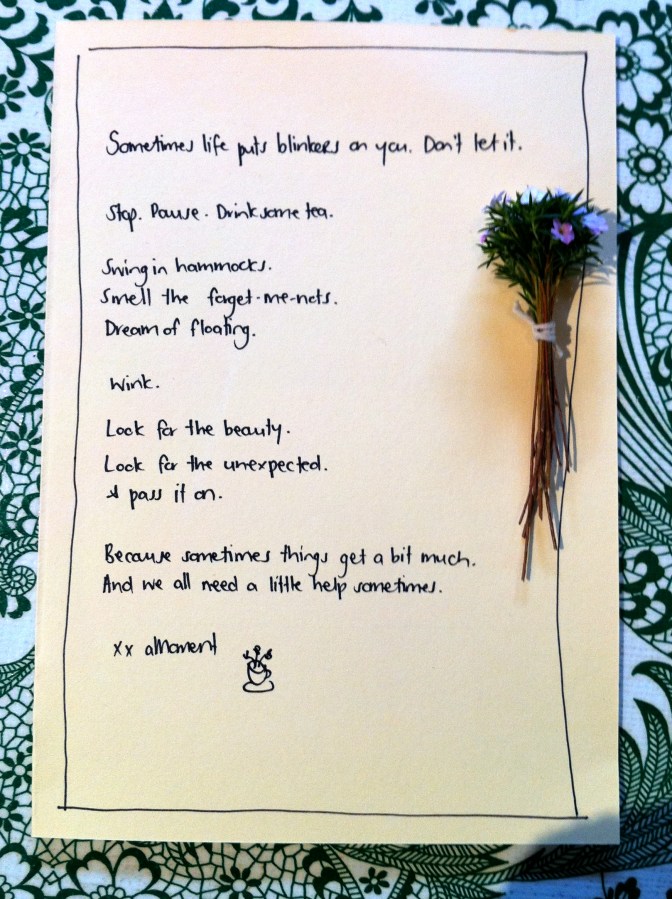 Sometimes life puts blinkers on you. Don't let it.
Stop. Pause. Drink some tea.
Swing in hammocks.
Smell the forget-me-nots.
Dream of floating.
Wink.
Look for the beauty.
Look for the unexpected.
& pass it on.
Because sometimes things get a bit much.
And we all need a little help sometimes.
xx aMoment